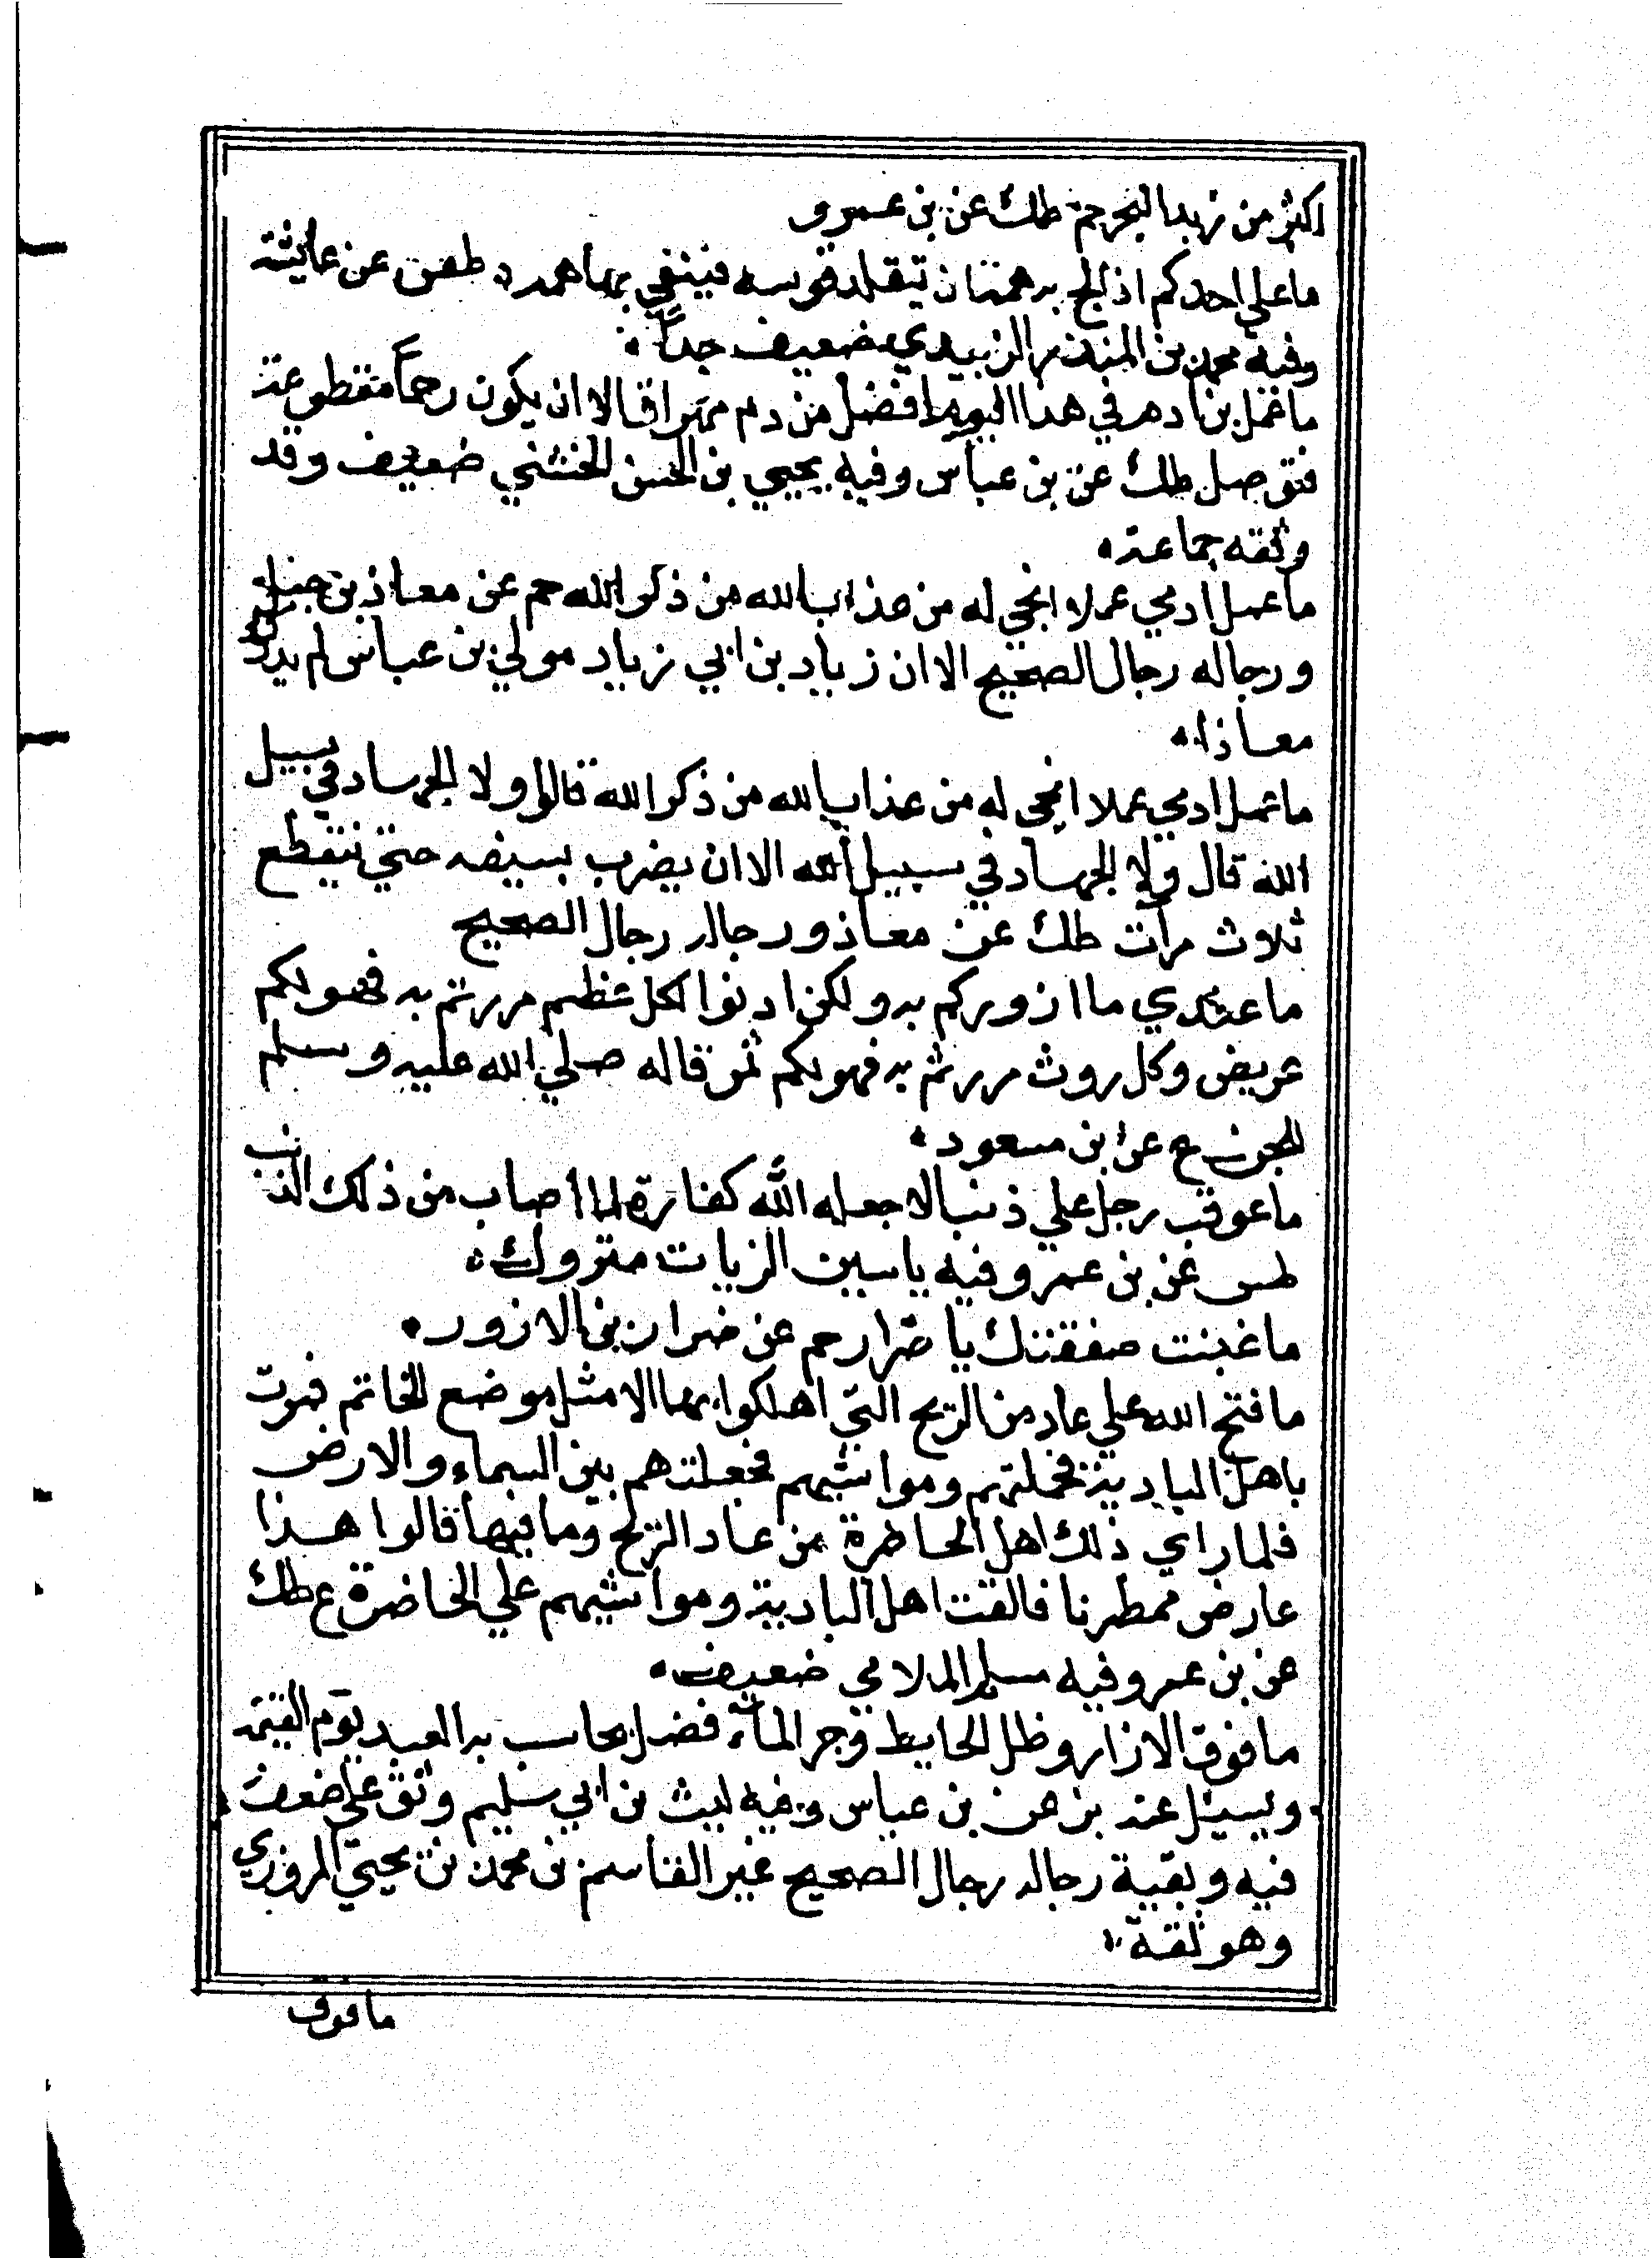 اكثر من زبد البحر حم طك عن بن عمرو
ما علي احدكم اذا لج به همه ان تيقلد قوسه فينفي بها همه طص عن عايشة
وفيه محمد بن المنذر الزبيدي ضعيف جداً
ما عمل بن ادم في هذا اليوم افضل من دم مهراق الا ان يكون رحماً مقطوعة
فتوصل طك عن بن عباس وفيه يحيي بن الحسن الخشني ضعيف وقد
وثقه جماعة
ما عمل ادمي عملا انجي له من عذاب الله من ذكر الله حم عن معاذ بن جبل
ورجاله رجال الصحيح الا ان زياد بن ابي زياد مولي بن عباس لم يدرك
معاذا
ما عمل ادمي عملا انجي له من عذاب الله من ذكر الله قالوا ولا الجهاد في سبيل
الله قال ولا الجهاد في سبيل الله الا ان يضرب بسيفه حتي تنقطع
ثلاث مرات طك عن معاذ ورجاله رجال الصحيح
ما عندي ما ازوركم به ولكن ادنوا لكل عظم مررتم به فهو لكم
عريض وكل روث مررتم به فهو لكم ثمر قاله صلي الله عليه وسلم
للجن ع عن ابن مسعود
ما عوقب رجل علي ذنب الا جعله الله كفارة لما أصاب من ذلك الذنب
طس عن بن عمر وفيه ياسين الزيات متروك
ما غبنت صفقتك يا ضرار حم عن ضرار بن الازور
ما فتح الله علي عاد من الريح التي اهلكوا بها الا مثل موضع الخاتم فمرت
باهل البادية فحملتهم ومواشيهم فجعلتهم بين السماء والارض
فلما راي ذلك اهل الحاظرة من عاد الريح وما فيها قالوا هذا
عارض ممطرنا فالقت اهل البادية ومواشيهم علي الحاضرة ع طك
عن بن عمر وفيه مسلم الملاي ضعيف
ما فوق الازار وظل الحايط وجر الماء فضل يحاسب به العبد يوم القيمة
ويسيل عنه بز عن بن عباس وفيه ليث بن ابي سليم وثق علي ضعف
فيه وبقية رجاله رجال الصحيح غير القاسم بن محمد بن يحيي المروزي
وهو ثقة
ما فوق